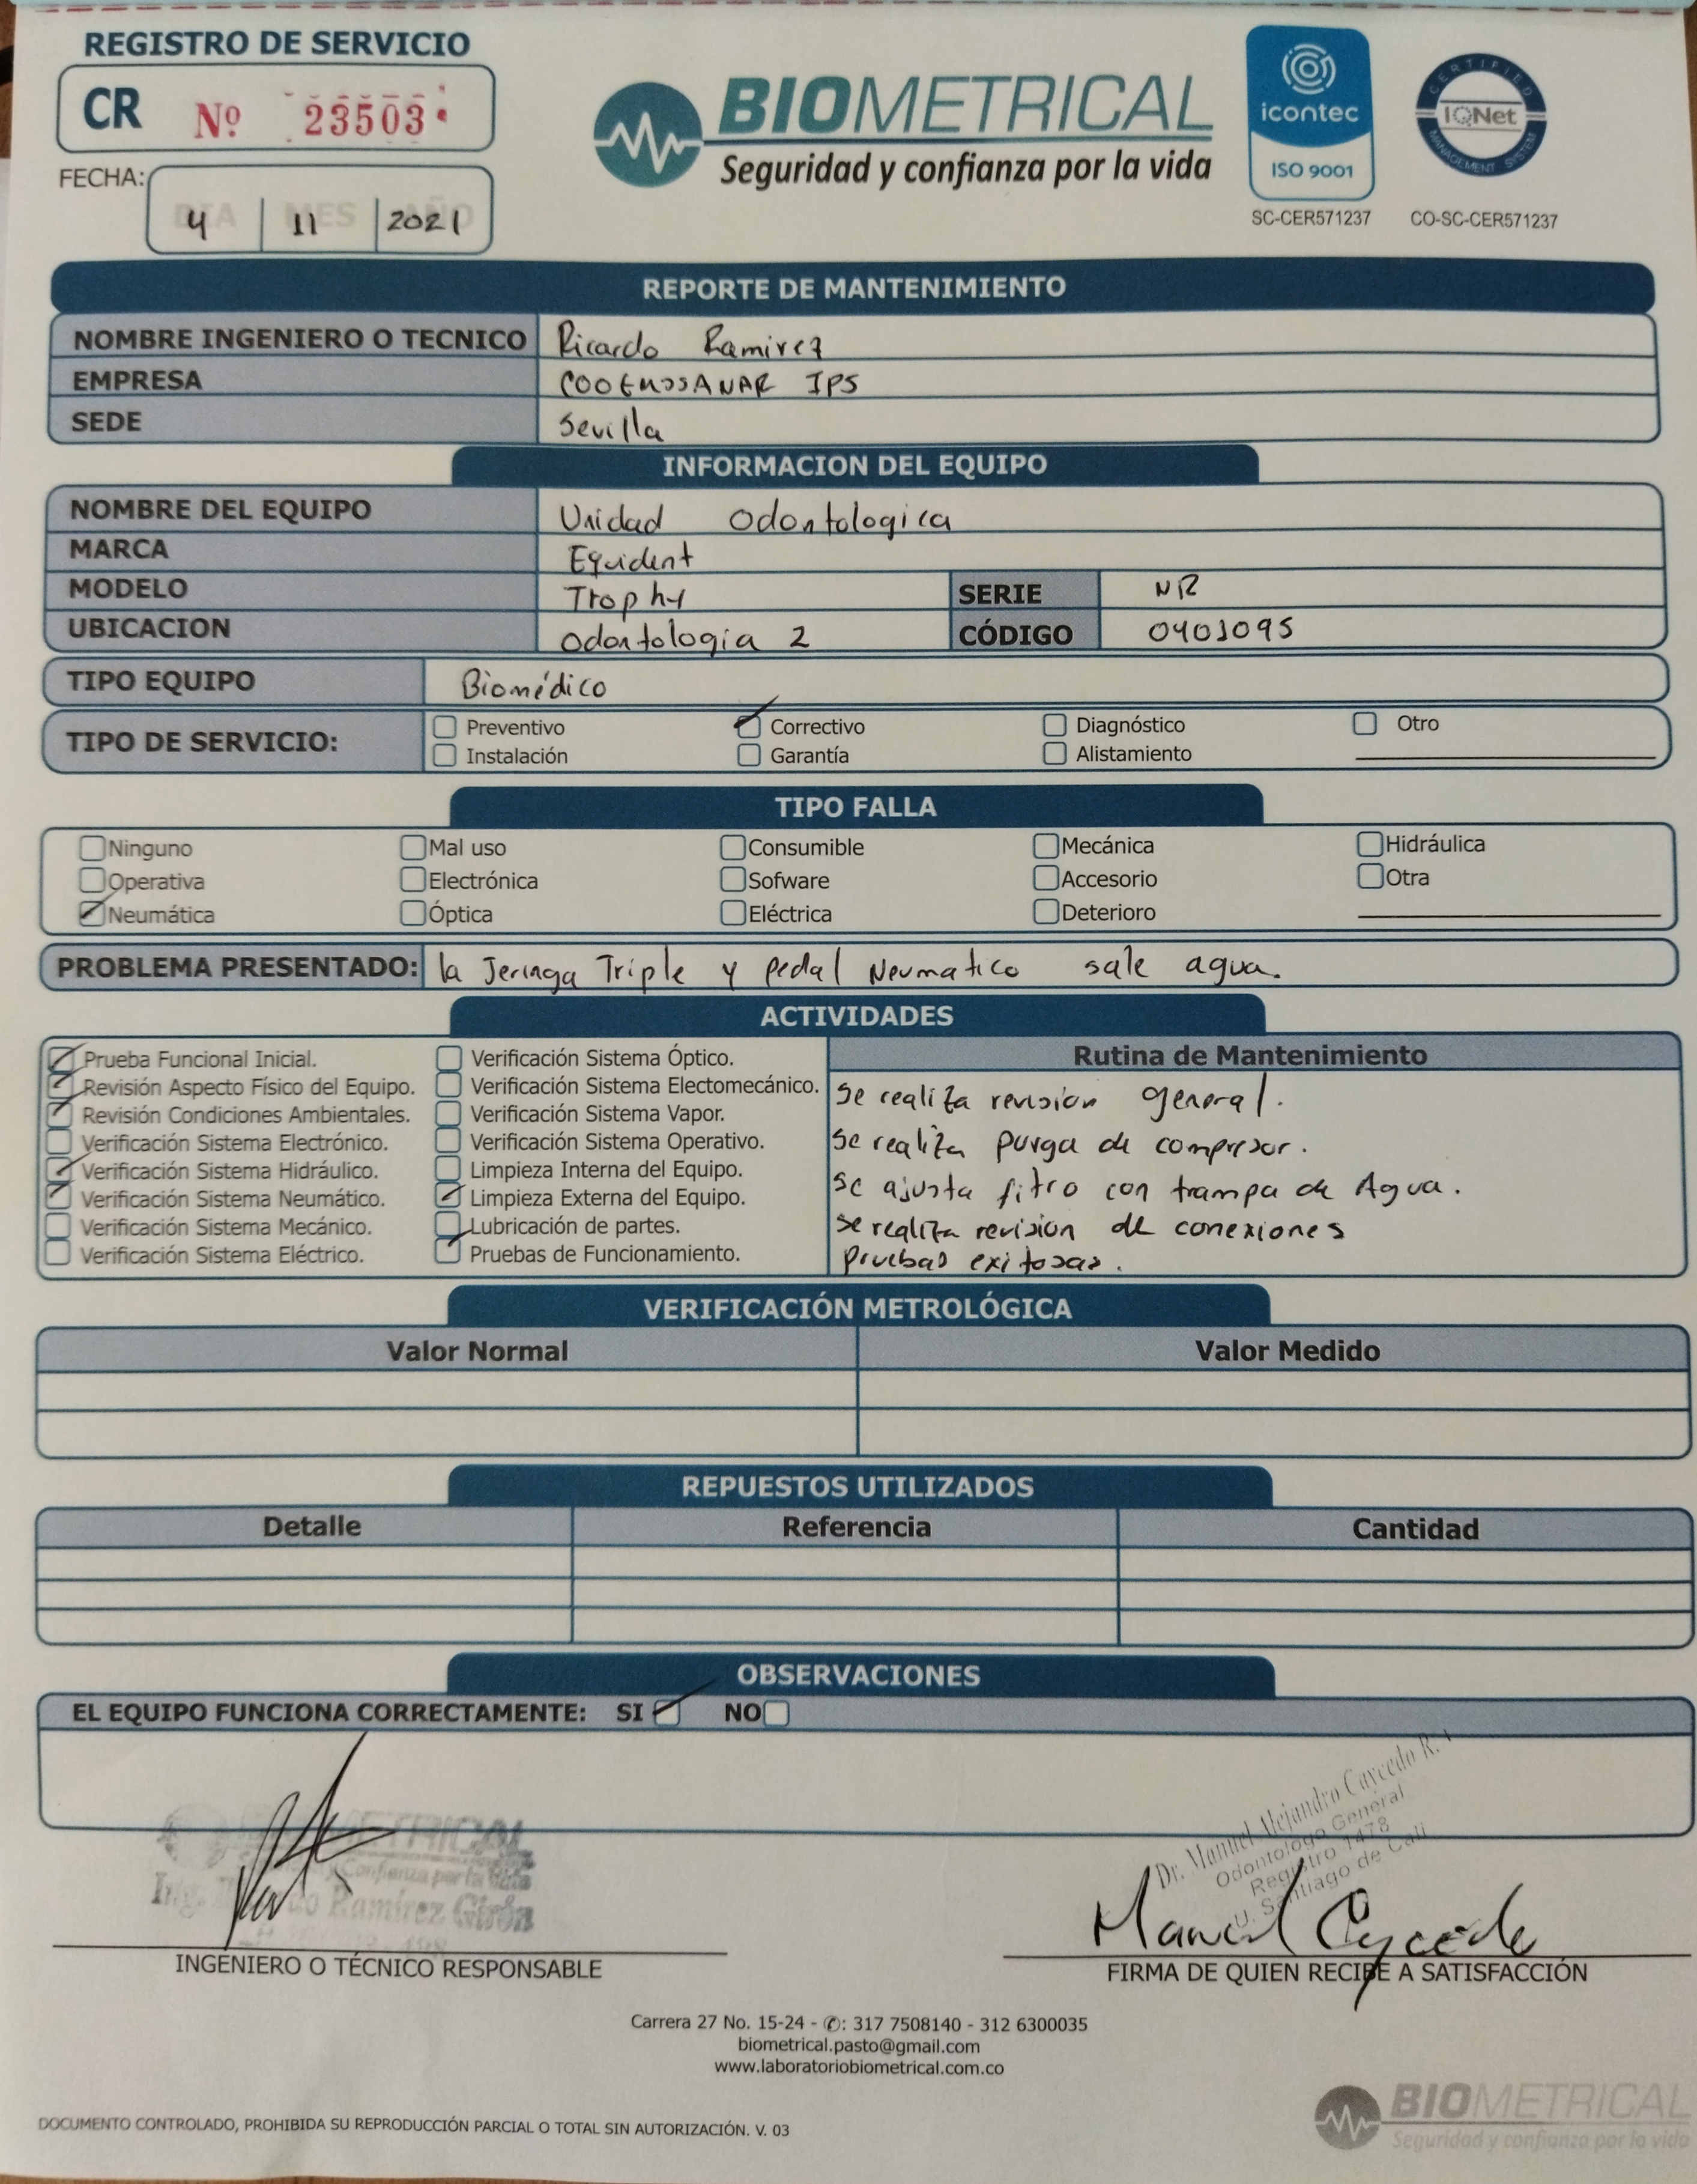 REGISTRO DE SERVICIO
CR Nº 23503
FECHA: DIA MES AÑO
4 11 2021
BIOMETRICAL
Seguridad y confianza por la vida
icontec
ISO 9001
SC-CER571237
CERTIFIED
IQNet
MANAGEMENT SYSTEM
CO-SC-CER571237
REPORTE DE MANTENIMIENTO
NOMBRE INGENIERO O TECNICO Ricardo Ramirez
EMPRESA COOEMSSANAR IPS
SEDE Sevilla
INFORMACION DEL EQUIPO
NOMBRE DEL EQUIPO Unidad Odontologica
MARCA Equident
MODELO Trophy SERIE NR
UBICACION Odontologia 2 CÓDIGO 0401095
TIPO EQUIPO Biomédico
TIPO DE SERVICIO:
Preventivo Correctivo Diagnóstico Otro
Instalación Garantía Alistamiento
TIPO FALLA
Ninguno Mal uso Consumible Mecánica Hidráulica
Operativa Electrónica Sofware Accesorio Otra
Neumática Óptica Eléctrica Deterioro
PROBLEMA PRESENTADO: la Jeringa Triple y pedal Neumatico sale agua.
ACTIVIDADES
Prueba Funcional Inicial.
Revisión Aspecto Físico del Equipo.
Revisión Condiciones Ambientales.
Verificación Sistema Electrónico.
Verificación Sistema Hidráulico.
Verificación Sistema Neumático.
Verificación Sistema Mecánico.
Verificación Sistema Eléctrico.
Verificación Sistema Óptico.
Verificación Sistema Electomecánico.
Verificación Sistema Vapor.
Verificación Sistema Operativo.
Limpieza Interna del Equipo.
Limpieza Externa del Equipo.
Lubricación de partes.
Pruebas de Funcionamiento.
Rutina de Mantenimiento
Se realiza revision general.
Se realiza purga de compresor.
Se ajusta fitro con trampa de Agua.
Se realiza revision de conexiones
Pruebas exitosas.
VERIFICACIÓN METROLÓGICA
Valor Normal Valor Medido
REPUESTOS UTILIZADOS
Detalle Referencia Cantidad
OBSERVACIONES
EL EQUIPO FUNCIONA CORRECTAMENTE: SI NO
BIOMETRICAL
y Confianza por la Vida
Ing. Ramírez Girón
INGENIERO O TÉCNICO RESPONSABLE
Dr. Manuel Alejandro Caycedo R.
Odontologo General
Registro 1478
U. Santiago de Cali
Manuel Caycedo
FIRMA DE QUIEN RECIBE A SATISFACCIÓN
Carrera 27 No. 15-24 - ✆: 317 7508140 - 312 6300035
biometrical.pasto@gmail.com
www.laboratoriobiometrical.com.co
DOCUMENTO CONTROLADO, PROHIBIDA SU REPRODUCCIÓN PARCIAL O TOTAL SIN AUTORIZACIÓN. V. 03
BIOMETRICAL
Seguridad y confianza por la vida